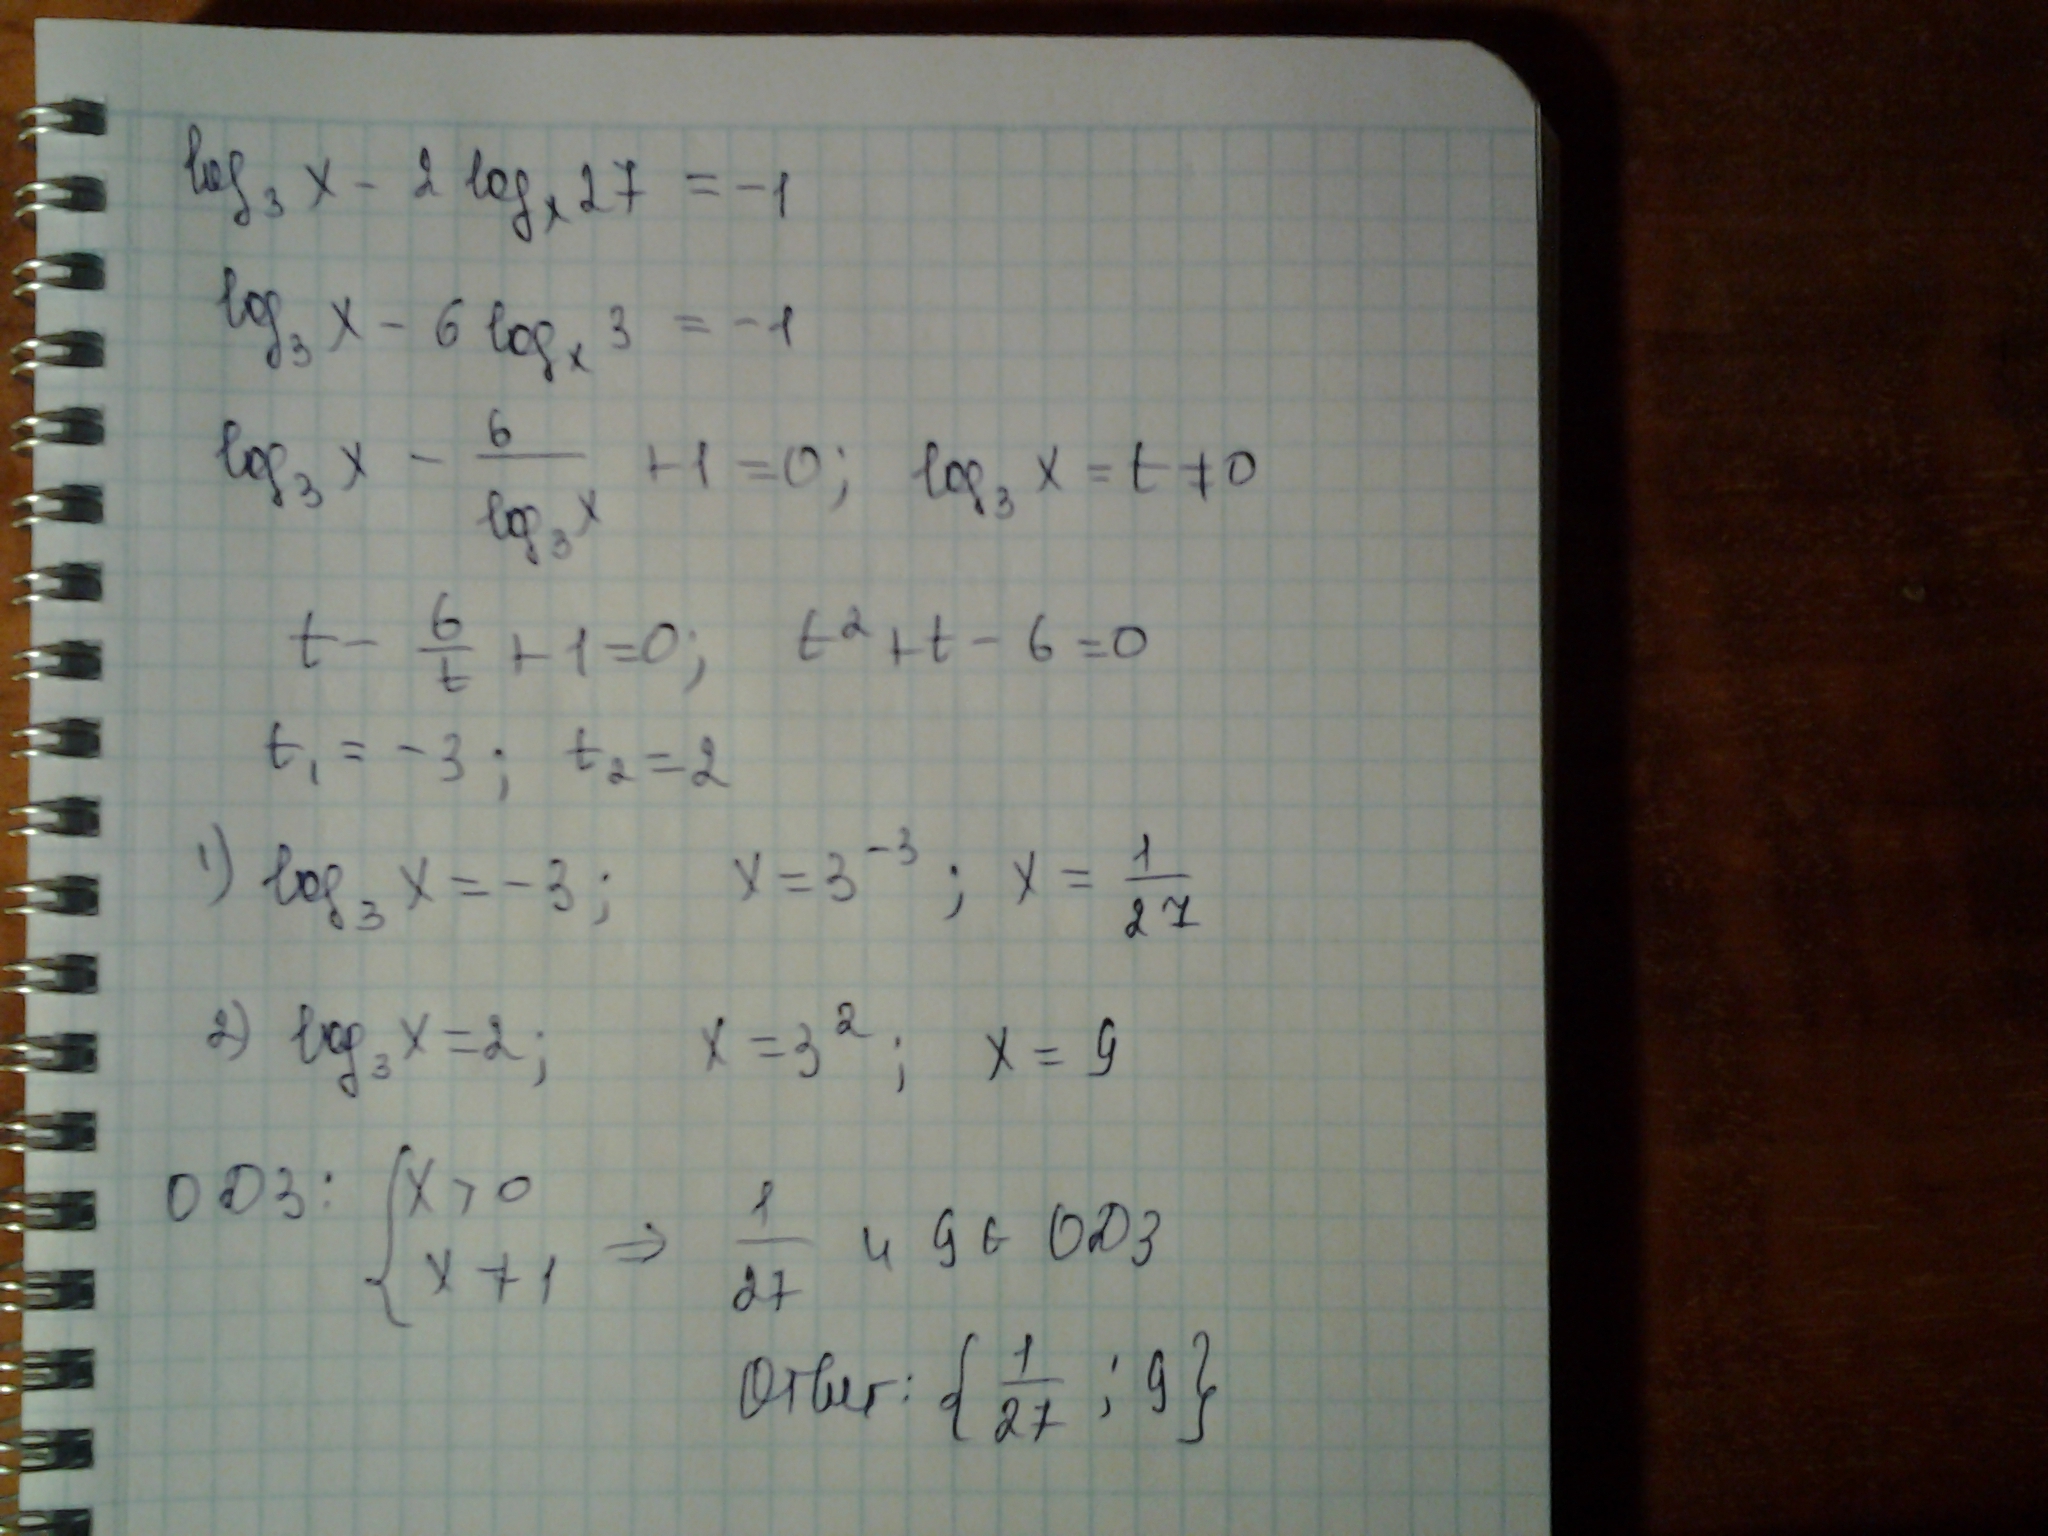 log₃ x - 2 logₓ 27 = -1
log₃ x - 6 logₓ 3 = -1
log₃ x - 6/log₃ x + 1 = 0; log₃ x = t ≠ 0
t - 6/t + 1 = 0; t² + t - 6 = 0
t₁ = -3; t₂ = 2
1) log₃ x = -3; x = 3⁻³; x = 1/27
2) log₃ x = 2; x = 3²; x = 9
ОДЗ: { x > 0
x ≠ 1 ⇒ 1/27 и 9 ∈ ОДЗ
Ответ: {1/27; 9}